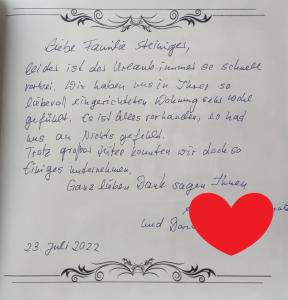 Liebe Familie Steiniger,
leider ist der Urlaub immer so schnell
vorbei. Wir haben uns in Ihrer so
liebevoll eingerichteten Wohnung sehr wohl
gefühlt. Es ist alles vorhanden, es had
uns an Nichts gefehlt.
Trotz großer Hitze konnten wir doch so
Einiges unternehmen.
Ganz lieben Dank sagen Ihnen
und
23. Juli 2022